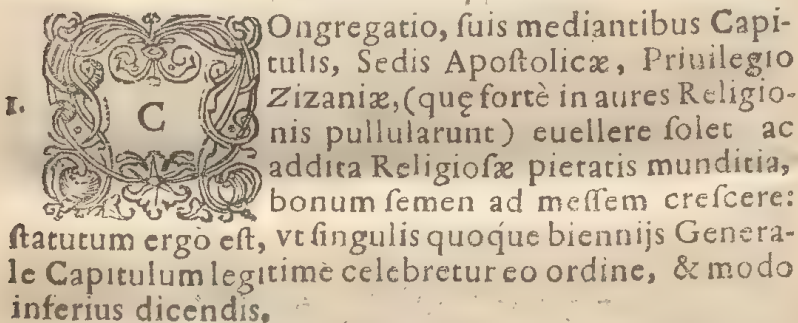 1. COngregatio, ſuis mediantibus Capi-
tulis, Sedis Apoſtolicæ, Priuilegio
Zizaniæ, (quę fortè in aures Religio-
nis pullularunt) euellere ſolet ac
addita Religioſæ pietatis munditia,
bonum ſemen ad meſſem creſcere:
ſtatutum ergò eſt, vt ſingulis quoque biennijs Genera-
le Capitulum legitimè celebretur eo ordine, & modo
inferius dicendis.